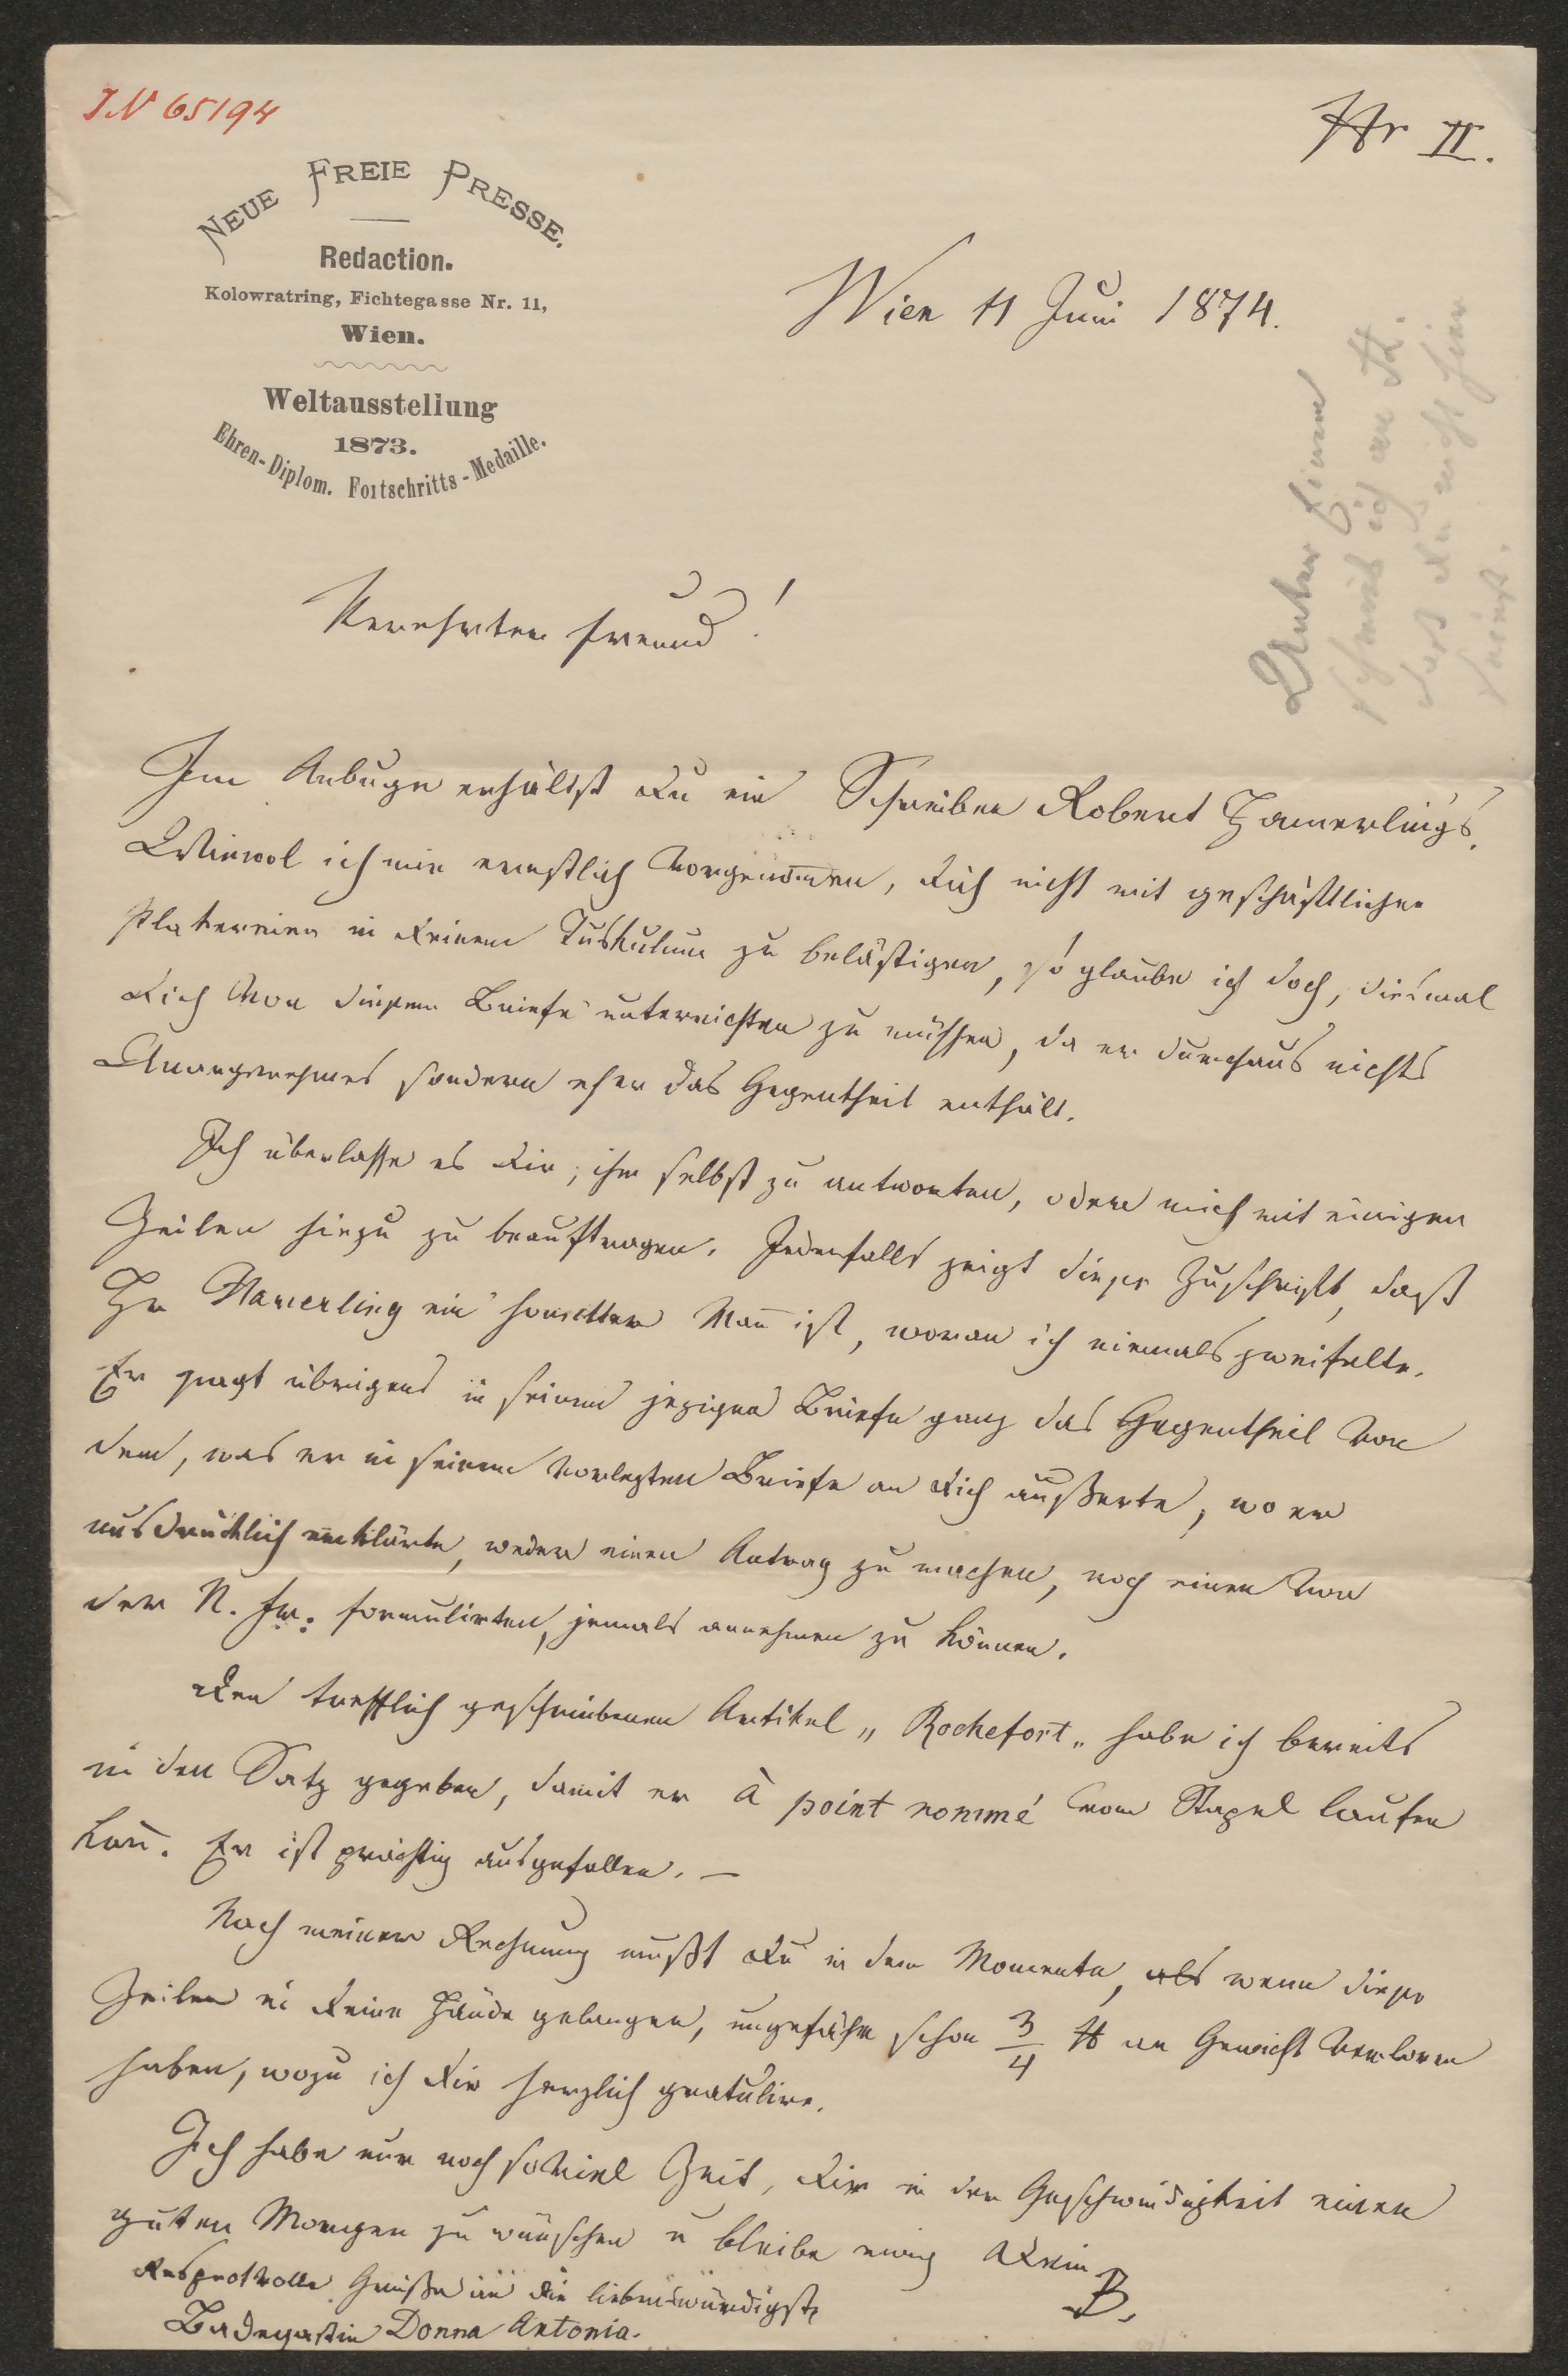 IN 65194
Nr II.
NEUE FREIE PRESSE.
Redaction.
Kolowratring, Fichtegasse Nr. 11,
Wien.
Weltausstellung
1873.
Ehren-Diplom. Fortschritts-Medaille.
Wien 11 Juni 1874.
Unter Einem
schrieb ich an H.
daß du nicht hier
seiest.
Verehrter Freund!
Im Anbuge erhältst Du ein Schreiben Robert Hamerling's.
Wiewol ich mir ernstlich vorgenom̄en, Dich nicht mit geschäftlichen
Plakereien in Deinem Tuskulum zu belästigen, so glaube ich doch, diesmal
Dich von diesem Briefe unterrichten zu müssen, da er durchaus nichts
Unangenehmes sondern eher das Gegentheil enthält.
Ich überlasse es Dir, ihm selbst zu antworten, oder mich mit einigen
Zeilen hiezu zu beauftragen. Jedenfalls zeigt diese Zuschrift, daß
Hr Hamerling ein honetter Man̄ ist, woran ich niemals zweifelte.
Er sagt übrigens in seinem jezigen Briefe ganz das Gegentheil von
dem, was er in seinem vorlezten Briefe an Dich äußerte, wo er
ausdrücklich erklärte, weder einen Antrag zu machen, noch einen von
der N. Fr. formulirten, jemals annehmen zu können.
Den trefflich geschriebenen Artikel „Rochefort" habe ich bereits
in den Satz gegeben, damit er à point nommé vom Stapel laufen
kan̄. Er ist prächtig ausgefallen. —
Nach meiner Rechnung mußt Du in dem Momente, als wenn diese
Zeilen in Deine Hände gelangen, ungefähr schon 3/4 ℔ an Gewicht verloren
haben, wozu ich Dir herzlich gratulire.
Ich habe nur noch soviel Zeit, Dir in der Geschwindigkeit einen
guten Morgen zu wünschen u bleibe ewig Dein
B.
Respectvolle Grüße an die liebenswürdigste
Badegastin Donna Antonia.